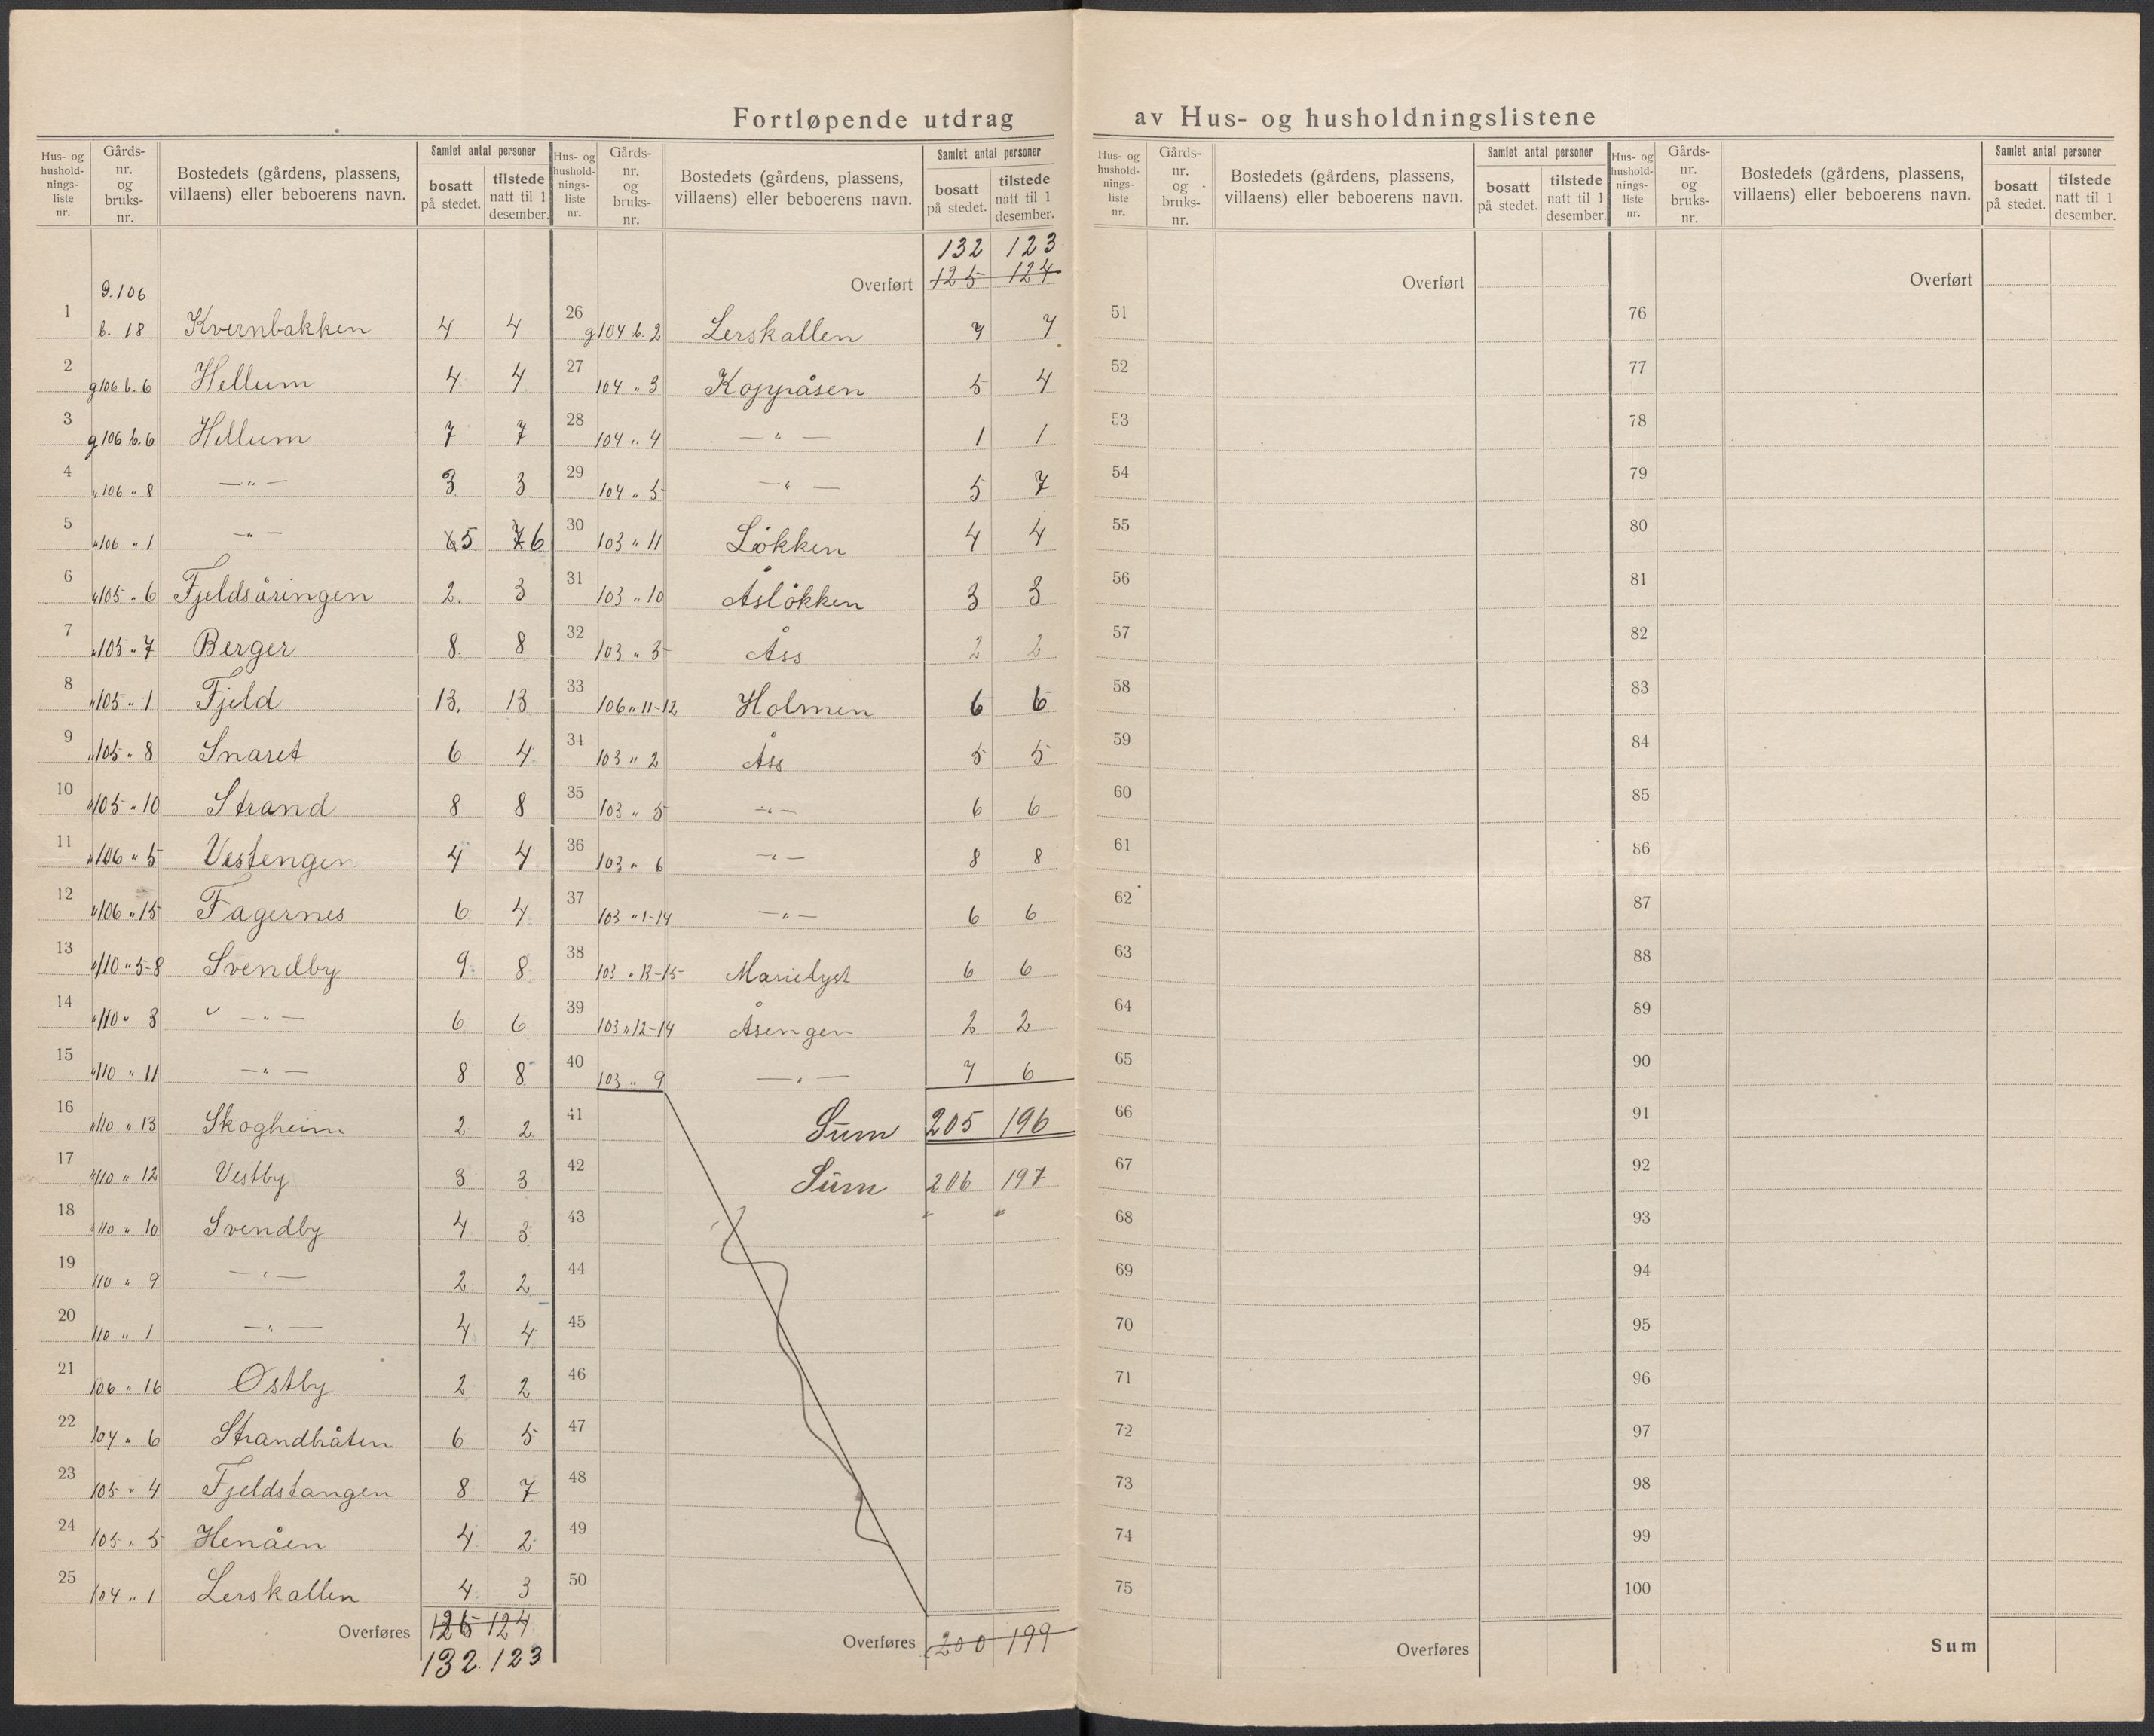 Fortløpende utdrag av Hus- og husholdningslistene
Hus- og hushold-nings-liste nr. Gårds-nr. og bruks-nr. Bostedets (gårdens, plassens, villaens) eller beboerens navn. Samlet antal personer bosatt på stedet. tilstede natt til 1 desember.
1 g. 106 b. 18 Kvernbakken 4 4
2 g 106 b. 6 Hellum 4 4
3 g 106 b. 6 Hellum 7 7
4 " 106 " 8 — " — 3 3
5 " 106 " 1 — " — 5 6
6 " 105 " 6 Fjeldsåringen 2. 3
7 " 105 " 7 Berger 8. 8
8 " 105 " 1 Fjeld 13. 13
9 " 105 " 8 Snaret 6 4
10 " 105 " 10 Strand 8 8
11 " 106 " 5 Vestengen 4 4
12 " 106 " 15 Fagernes 6 4
13 " 110 " 5-8 Svendby 9 8
14 " 110 " 3 — " — 6 6
15 " 110 " 11 — " — 8 8
16 " 110 " 13 Skogheim 2 2.
17 " 110 " 12 Vestby 3 3
18 " 110 " 10 Svendby 4 3
19 110 " 9 — " — 2 2
20 110 " 1 — " — 4 4
21 106 " 16 Østby 2 2
22 104 " 6 Strandbråten 6 5
23 105 " 4 Fjeldstangen 8 7
24 105 " 5 Henåen 4 2
25 104 " 1 Lerskallen 4 3
Overføres 125 124
132. 123
Hus- og hushold-nings-liste nr. Gårds-nr. og bruks-nr. Bostedets (gårdens, plassens, villaens) eller beboerens navn. Samlet antal personer bosatt på stedet. tilstede natt til 1 desember.
132 123
Overført 125 124
26 g 104 b. 2 Lerskallen 7 7
27 104 " 3 Koppåsen 5 4
28 104 " 4 — " — 1 1
29 104 " 5 — " — 5 7
30 103 " 11 Løkken 4 4
31 103 " 10 Åsløkken 3 3
32 103 " 3 Åss 2 2
33 106 " 11-12 Holmen 6 6
34 103 " 2 Åss 5 5
35 103 " 5 — " — 6 6
36 103 " 6 — " — 8 8
37 103 " 1-14 — " — 6 6
38 103 " 13-15 Marielyst 6 6
39 103 " 12-14 Åsengen 2 2
40 103 " 9 — " — 7 6
41 Sum 205 196
42 Sum 206 197
43
44
45
46
47
48
49
50
Overføres 200 199
Hus- og hushold-nings-liste nr. Gårds-nr. og bruks-nr. Bostedets (gårdens, plassens, villaens) eller beboerens navn. Samlet antal personer bosatt på stedet. tilstede natt til 1 desember.
Overført
51
52
53
54
55
56
57
58
59
60
61
62
63
64
65
66
67
68
69
70
71
72
73
74
75
Overføres
Hus- og hushold-nings-liste nr. Gårds-nr. og bruks-nr. Bostedets (gårdens, plassens, villaens) eller beboerens navn. Samlet antal personer bosatt på stedet. tilstede natt til 1 desember.
Overført
76
77
78
79
80
81
82
83
84
85
86
87
88
89
90
91
92
93
94
95
96
97
98
99
100
Sum